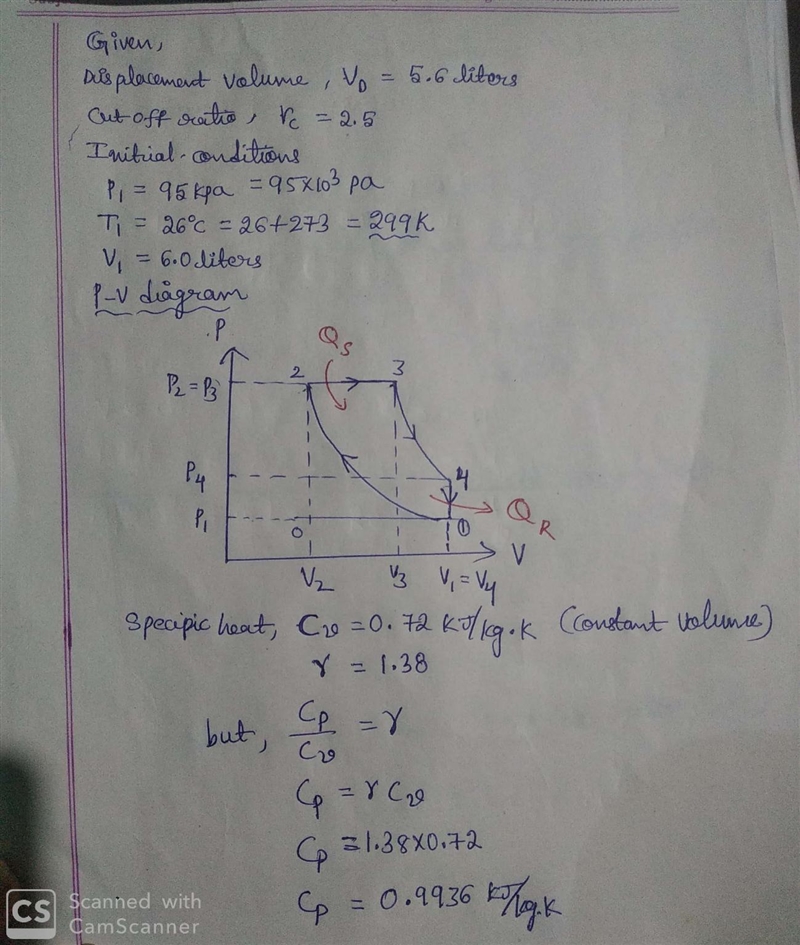 Given,
Displacement volume, V_D = 5.6 liters
Cut off ratio, r_c = 2.5
Initial conditions
P_1 = 95 kpa = 95×10^3 pa
T_1 = 26°C = 26+273 = 299K
V_1 = 6.0 liters
P-V diagram
P
Q_S
2 3
P_2 = P_3
P_4 4
P_1 0 1 Q_R
V
V_2 V_3 V_1 = V_4
Specipic heat, C_v = 0.72 KJ/kg.K (constant volume)
γ = 1.38
but, C_p/C_v = γ
C_p = γ C_v
C_p = 1.38×0.72
C_p = 0.9936 KJ/kg.K
CS Scanned with
CamScanner